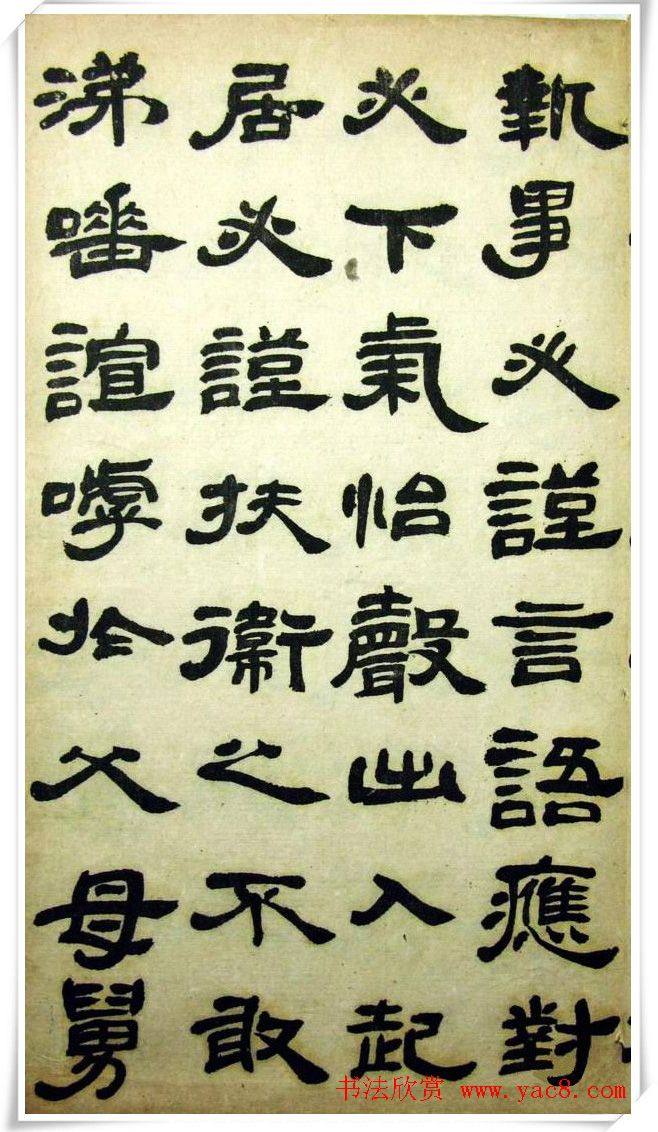 執事必謹言語應對
必下氣怡聲出入起
居必謹扶衛之不敢
涕唾諠嘑於父母舅
书法欣赏 www.yac8.com